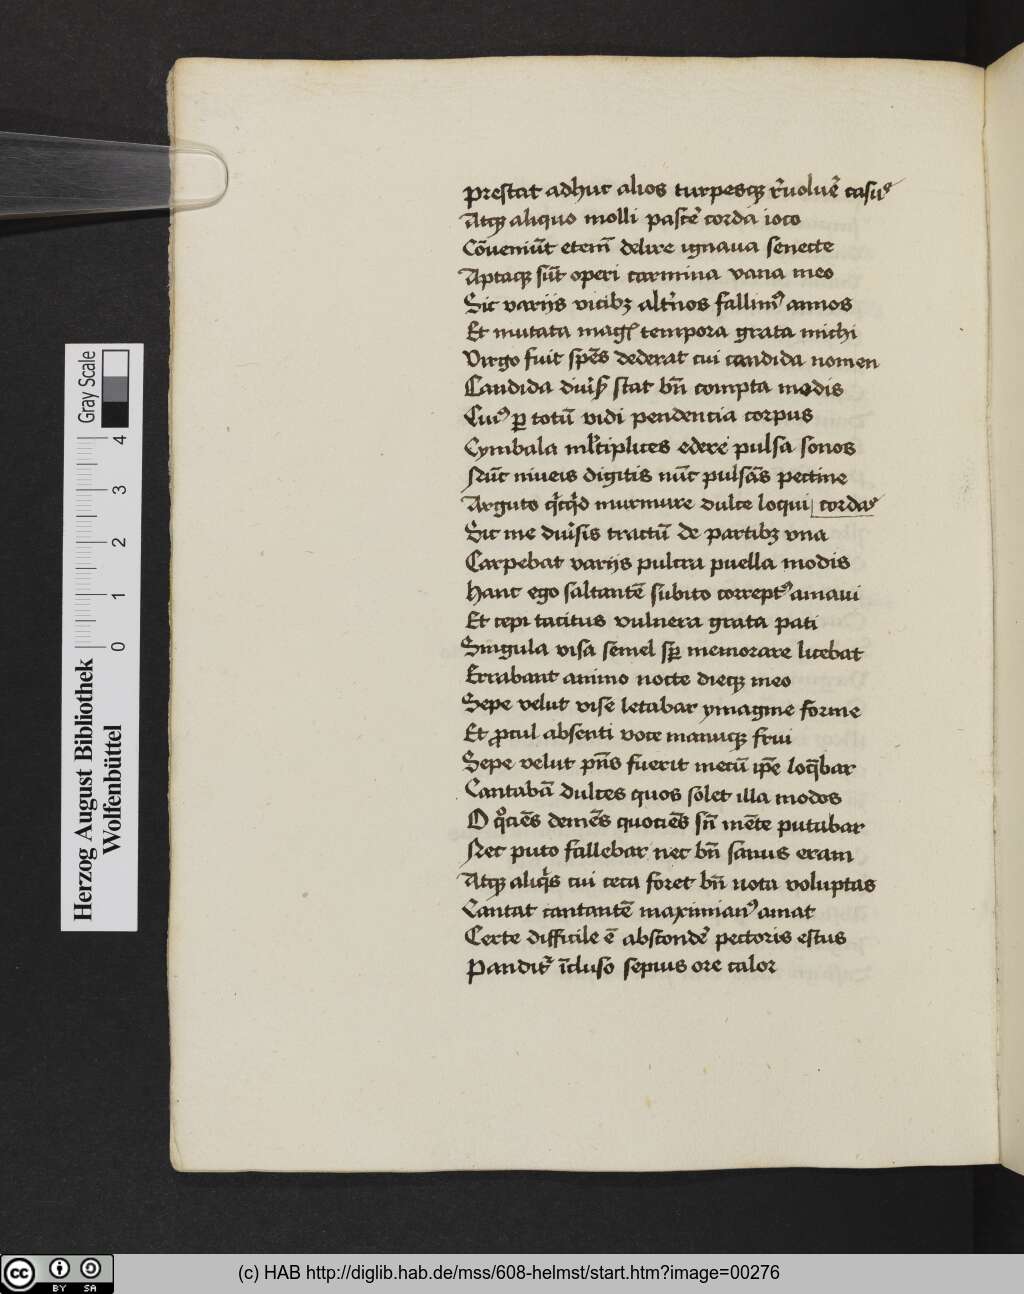 Prestat adhuc alios turpesqꝫ r̄uoluē casuꝰ
Atqꝫ aliquo molli pascē corda ioco
Cōueniūt eteni̅ delire ignaua senecte
Aptaqꝫ sūt operi carmina vana meo
Sic varijs vicibꝫ alt̄nos fallimꝰ annos
Et mutata magꝭ tempora grata michi
Virgo fuit spēs dederat cui candida nomen
Candida diu̓sꝭ stat bn̄ compta modis
Cuiꝰ ꝑ totū vidi pendencia corpus
Cymbala ml̓tiplices edere pulsa sonos
Nūc niueis digitis nūc pulsās pectine
Arguto q̄cq̄d murmure dulce loqui cordaꝰ
Sic me diu̓sis tractū de partibꝫ vna
Carpebat varijs pulcra puella modis
Hanc ego saltantē subito correptꝰ amaui
Et cepi tacitus vulnera grata pati
Singula visa semel sꝑ memorare licebat
Errabant animo nocte dieqꝫ meo
Sepe velut vise letabar ymagine forme
Et ꝓcul absenti voce manuqꝫ frui
Sepe velut pn̄s fuerit mecū ip̄e loq̄bar
Cantabā dulces quos solet illa modos
O q̊ciēs demēs quociēs sn̄ mēte putabar
Nec puto fallebar nec bn̄ sanus eram
Atqꝫ aliq̄s cui ceca foret bn̄ nota voluptas
Cantat cantantē maximianꝰ amat
Certe difficile ē abscondē pectoris estus
Panditᷣ īcluso sepius ore calor
Herzog August Bibliothek
Wolfenbüttel
0 1 2 3 4
Gray Scale
cc BY SA
(c) HAB http://diglib.hab.de/mss/608-helmst/start.htm?image=00276